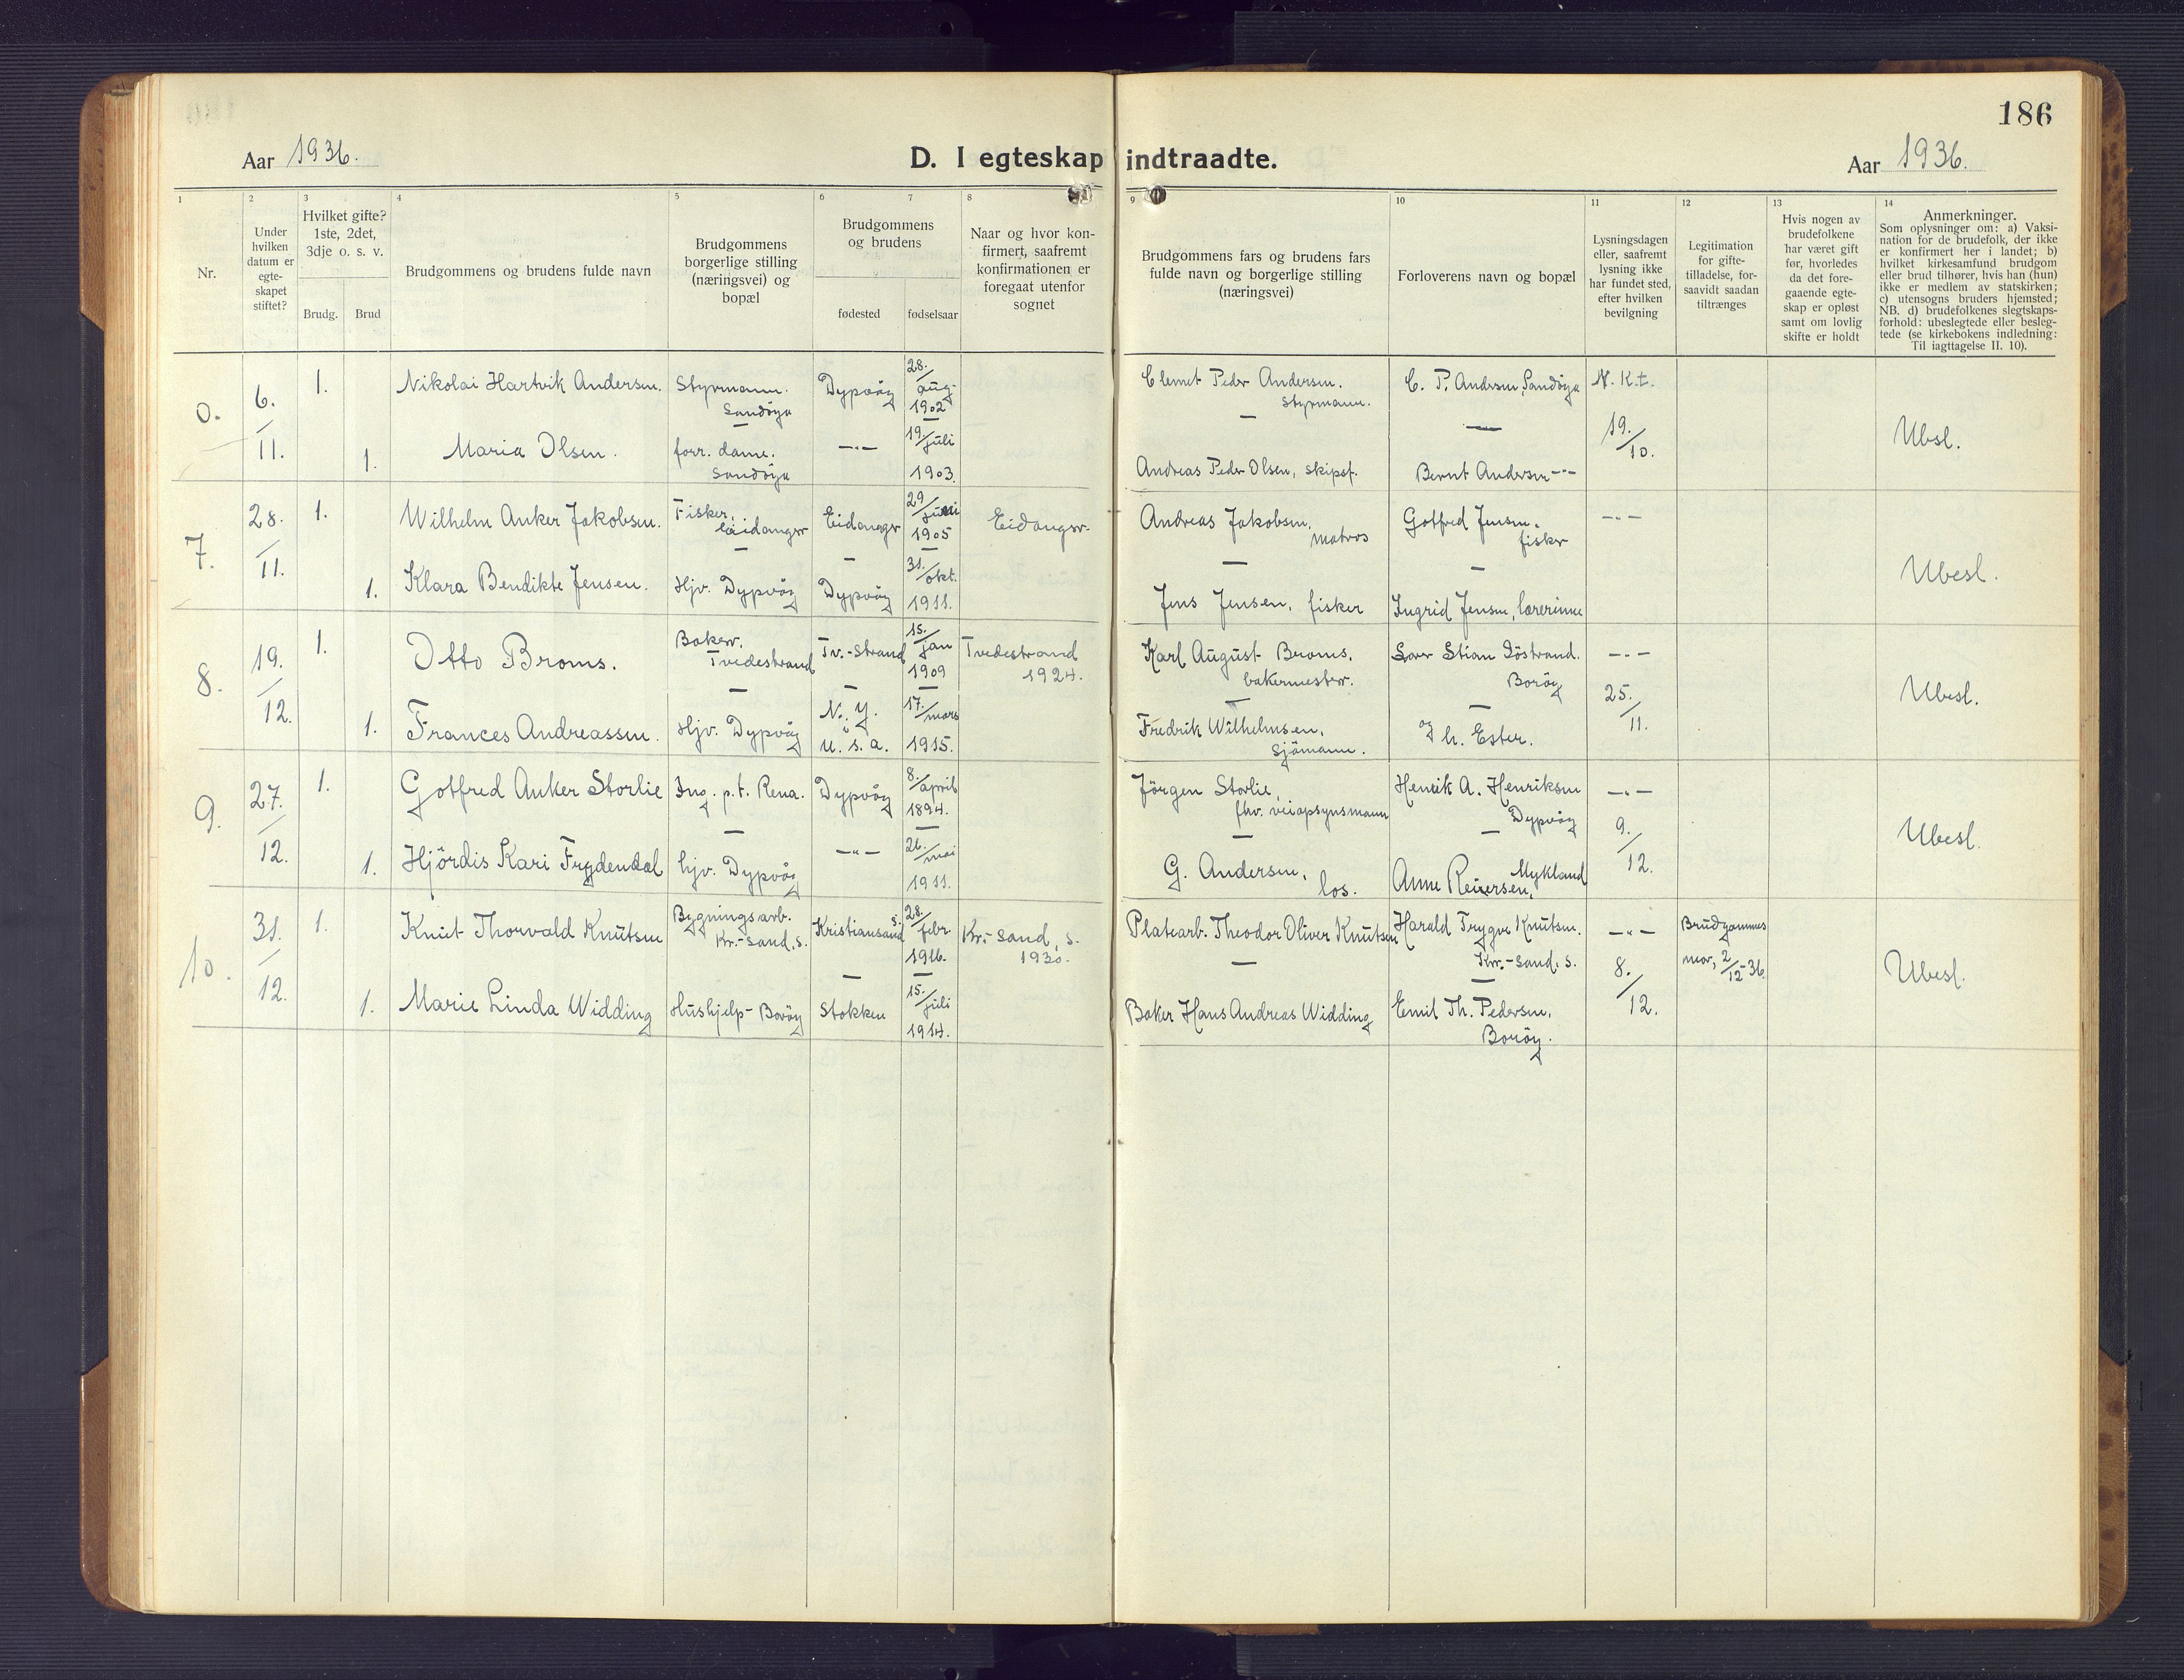 186
Aar 1936.
D. I egteskap indtraadte.
Aar 1936.
1
2
3
4
5
6
7
8
9
10
11
12
13
14
Nr.
Under
hvilken
datum er
egte-
skapet
stiftet?
Hvilket gifte?
1ste, 2det,
3dje o. s. v.
Brudg.
Brud
Brudgommens og brudens fulde navn
Brudgommens
borgerlige stilling
(næringsvei) og
bopæl
Brudgommens
og brudens
fødested
fødselsaar
Naar og hvor kon-
firmert, saafremt
konfirmationen er
foregaat utenfor
sognet
Brudgommens fars og brudens fars
fulde navn og borgerlige stilling
(næringsvei)
Forloverens navn og bopæl
Lysningsdagen
eller, saafremt
lysning ikke
har fundet sted,
efter hvilken
bevilgning
Legitimation
for gifte-
tilladelse, for-
saavidt saadan
tiltrænges
Hvis nogen av
brudefolkene
har været gift
før, hvorledes
da det fore-
gaaende egte-
skap er opløst
samt om lovlig
skifte er holdt
Anmerkninger.
Som oplysninger om: a) Vaksi-
nation for de brudefolk, der ikke
er konfirmert her i landet; b)
hvilket kirkesamfund brudgom
eller brud tilhører, hvis han (hun)
ikke er medlem av statskirken;
c) utensogns bruders hjemsted;
NB. d) brudefolkenes slegtskaps-
forhold: ubeslegtede eller besleg-
tede (se kirkebokens indledning:
Til iagttagelse II. 10).
0.
6.
/
11.
1.
Nikolai Hartvik Andersen.
Styrmann.
Sandöya
Dypvåg
28./
aug.
1902
Clemet Peder Andersen.
Styrmann.
C. P. Andersen, Sandöya
N. K. t.
19./
10.
Ubsl.
1.
Maria Olsen.
forr. dame.
Sandöya
—"—
19./
juli
1903.
Andreas Peder Olsen, skipsf.
Bernt Andersen —"—
7.
28.
/
11.
1.
Wilhelm Anker Jakobsen.
Fisker,
Eidanger
Eidanger
29/
juni
1905
Eidanger.
Andreas Jakobsen,
matros
Gotfred Jensen.
fisker
—"—
Ubesl.
1.
Klara Bendikte Jensen.
Hjv. Dypvåg
Dypvåg
31./
okt.
1911.
Jens Jensen, fisker
Ingrid Jensen, lærerinne
8.
19.
/
12.
1.
Otto Broms.
Baker.
Tvedestrand
Tv.-strand
15./
jan
1909
Tvedestrand
1924.
Karl August Broms.
bakermester.
Stian
Boröy
—"—
25./
11.
Ubesl.
1.
Frances Andreassen.
Hjv. Dypvåg
N. Y.
i
U. S. A.
17./
mars
1915.
Fredrik Wilhelmsen,
sjömann.
og h. Ester.
9.
27.
/
12.
1.
Gotfred Anker Storlie
Ing. p.t. Rena.
Dypvåg
8./
april
1894.
Jörgen Storlie,
fhv. veiopsynsmann
Henrik A. Henriksen
Dypvåg
—"—
9./
12.
Ubesl.
1.
Hjördis Kari Frydendal
hjv. Dypvåg
—"—
26./
mai
1911.
G. Andersen,
los.
Anne Reiersen, Mykland
10.
31.
/
12.
1.
Knut Thorvald Knutsen
Bygningsarb.
Kr.-sand, s.
Kristiansand s.
28./
febr.
1916.
Kr.-sand, s.
1930.
Platearb. Theodor Oliver Knutsen
Harald Trygve Knutsen.
Kr.-sand, s.
—"—
8./
12.
Brudgommens
mor, 2/12-36
Ubesl.
1.
Marie Linda Widding
Hushjelp - Boröy
Stokken
15./
juli
1914.
Baker Hans Andreas Widding
Emil Th. Pedersen,
Boröy.